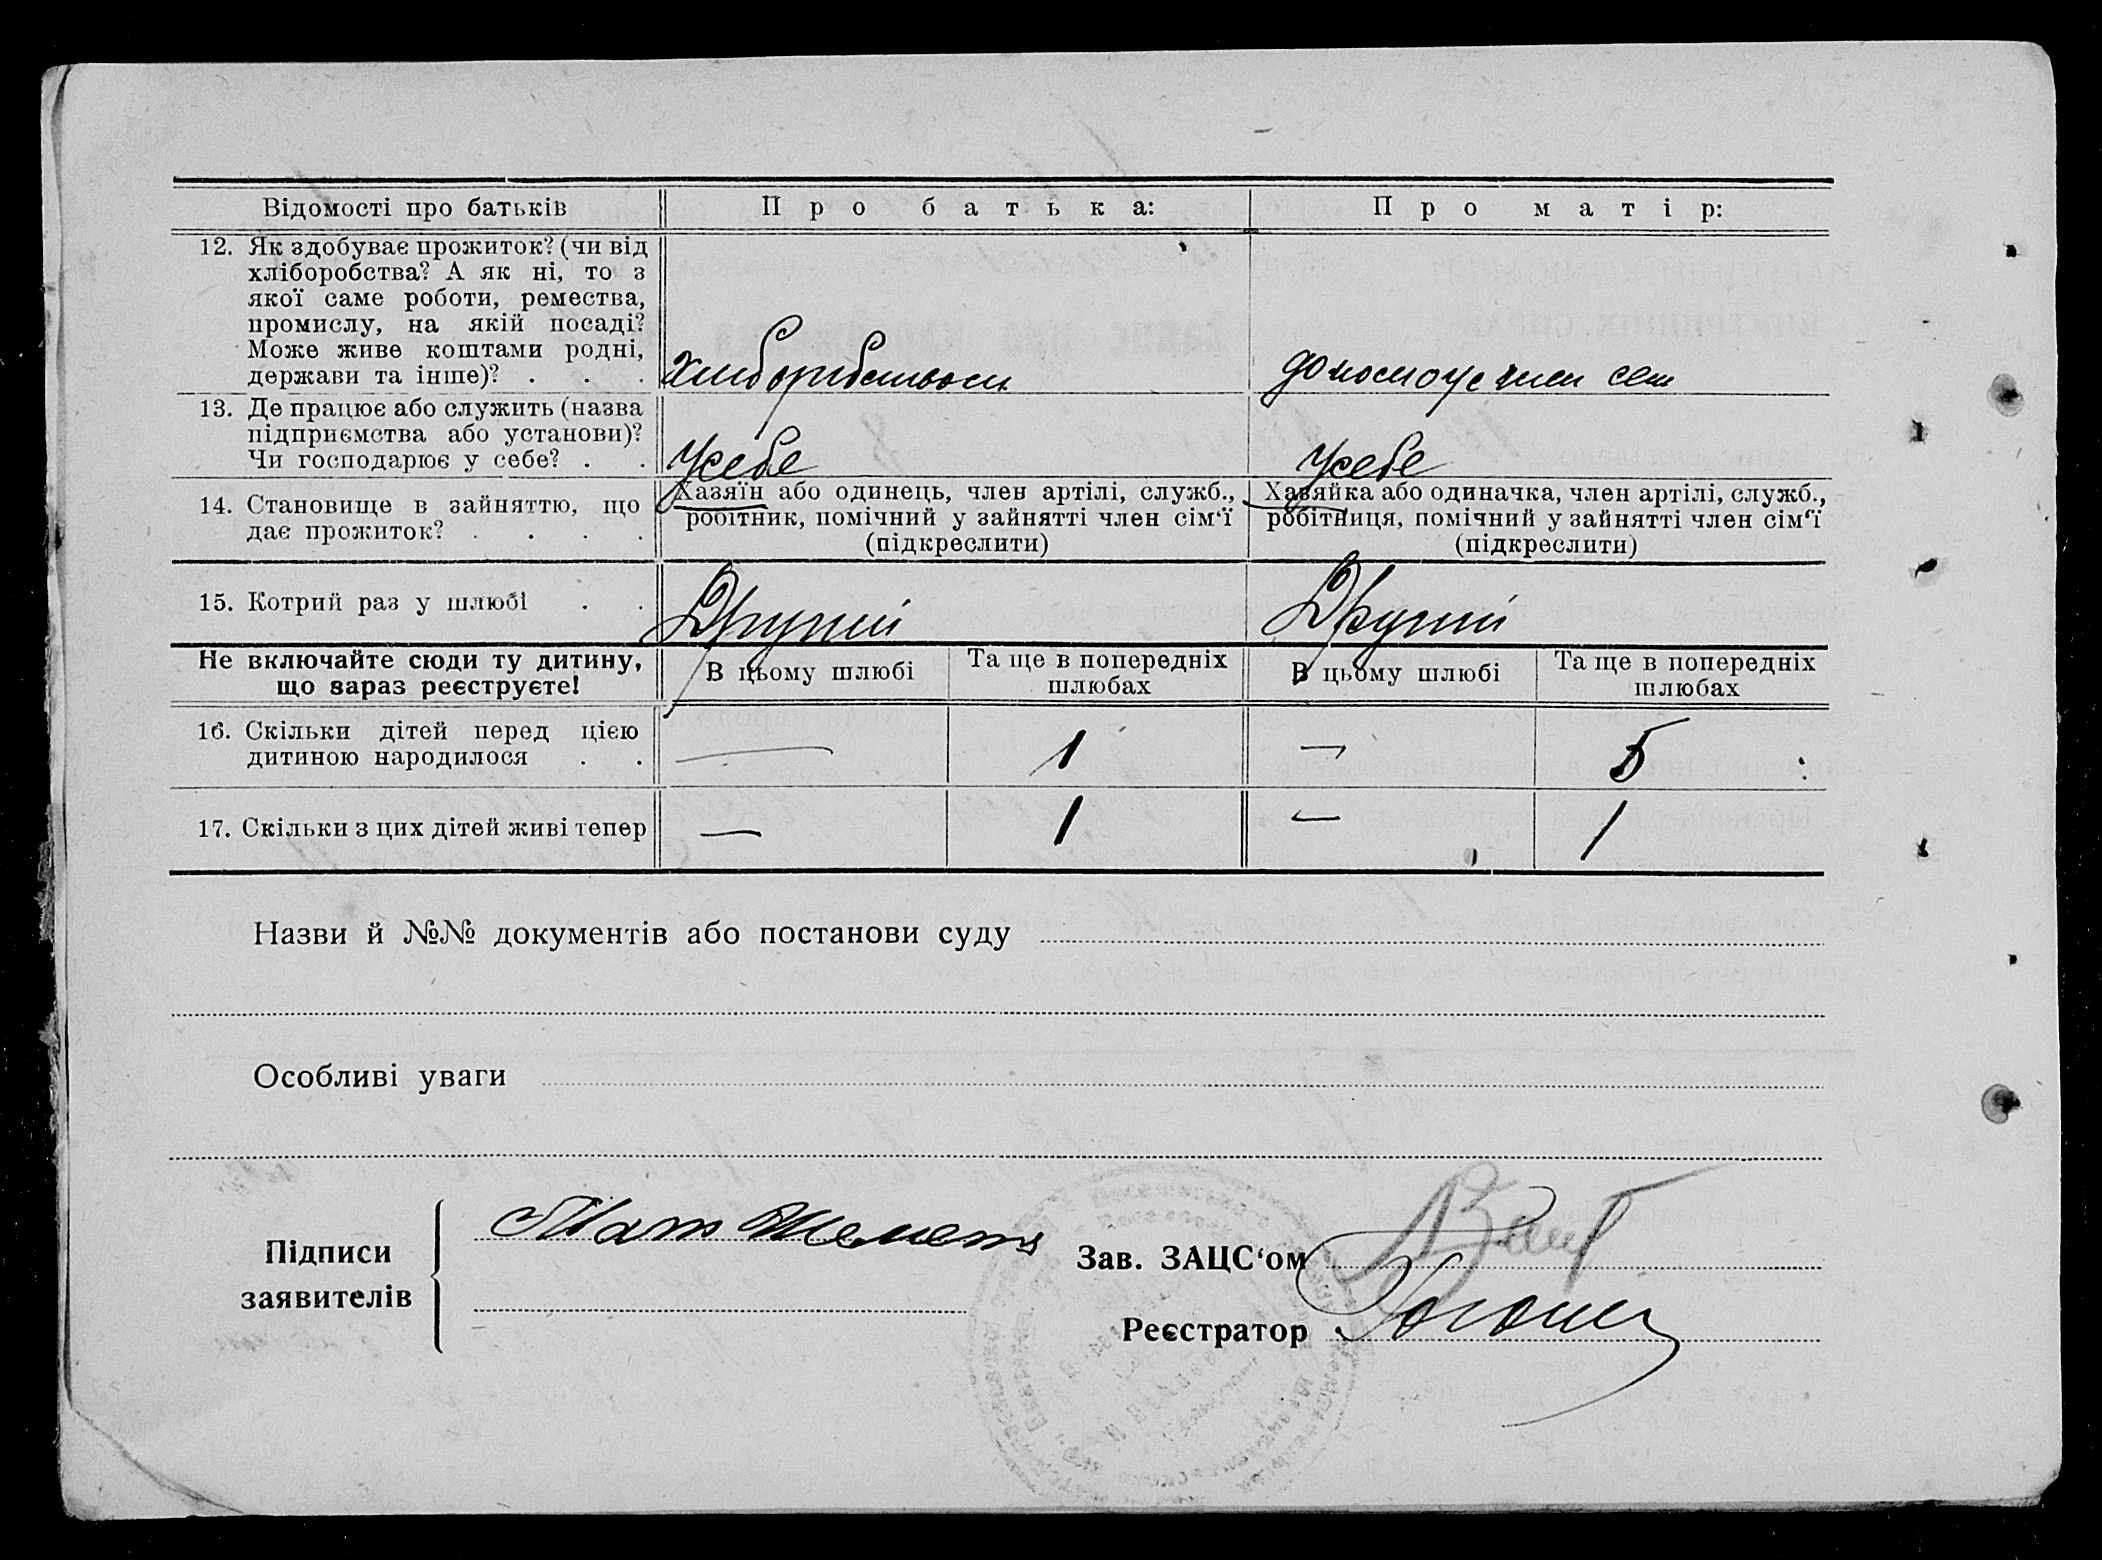 Відомості про батьків
Про батька:
Про матір:
12. Як здобуває прожиток? (чи від
хліборобства? А як ні, то з
якої саме роботи, ремества,
промислу, на якій посаді?
Може живе коштами родні,
держави та інше)? . . .
13. Де працює або служить (назва
підприємства або установи)?
Чи господарює у себе? . .
усебе
усебе
14. Становище в зайняттю, що
дає прожиток? . . . .
Хазяїн або одинець, член артілі, служб.,
робітник, помічний у зайнятті член сім‘ї
(підкреслити)
Хазяйка або одиначка, член артілі, служб.,
робітниця, помічний у зайнятті член сім‘ї
(підкреслити)
15. Котрий раз у шлюбі . .
Другий
Другий
Не включайте сюди ту дитину,
що зараз реєструєте!
В цьому шлюбі
Та ще в попередніх
шлюбах
В цьому шлюбі
Та ще в попередніх
шлюбах
16. Скільки дітей перед цією
дитиною народилося . .
— 1 — 5
17. Скільки з цих дітей живі тепер
— 1 — 1
Назви й №№ документів або постанови суду
Особливі уваги
Підписи
заявителів
Зав. ЗАЦС‘ом
Реєстратор